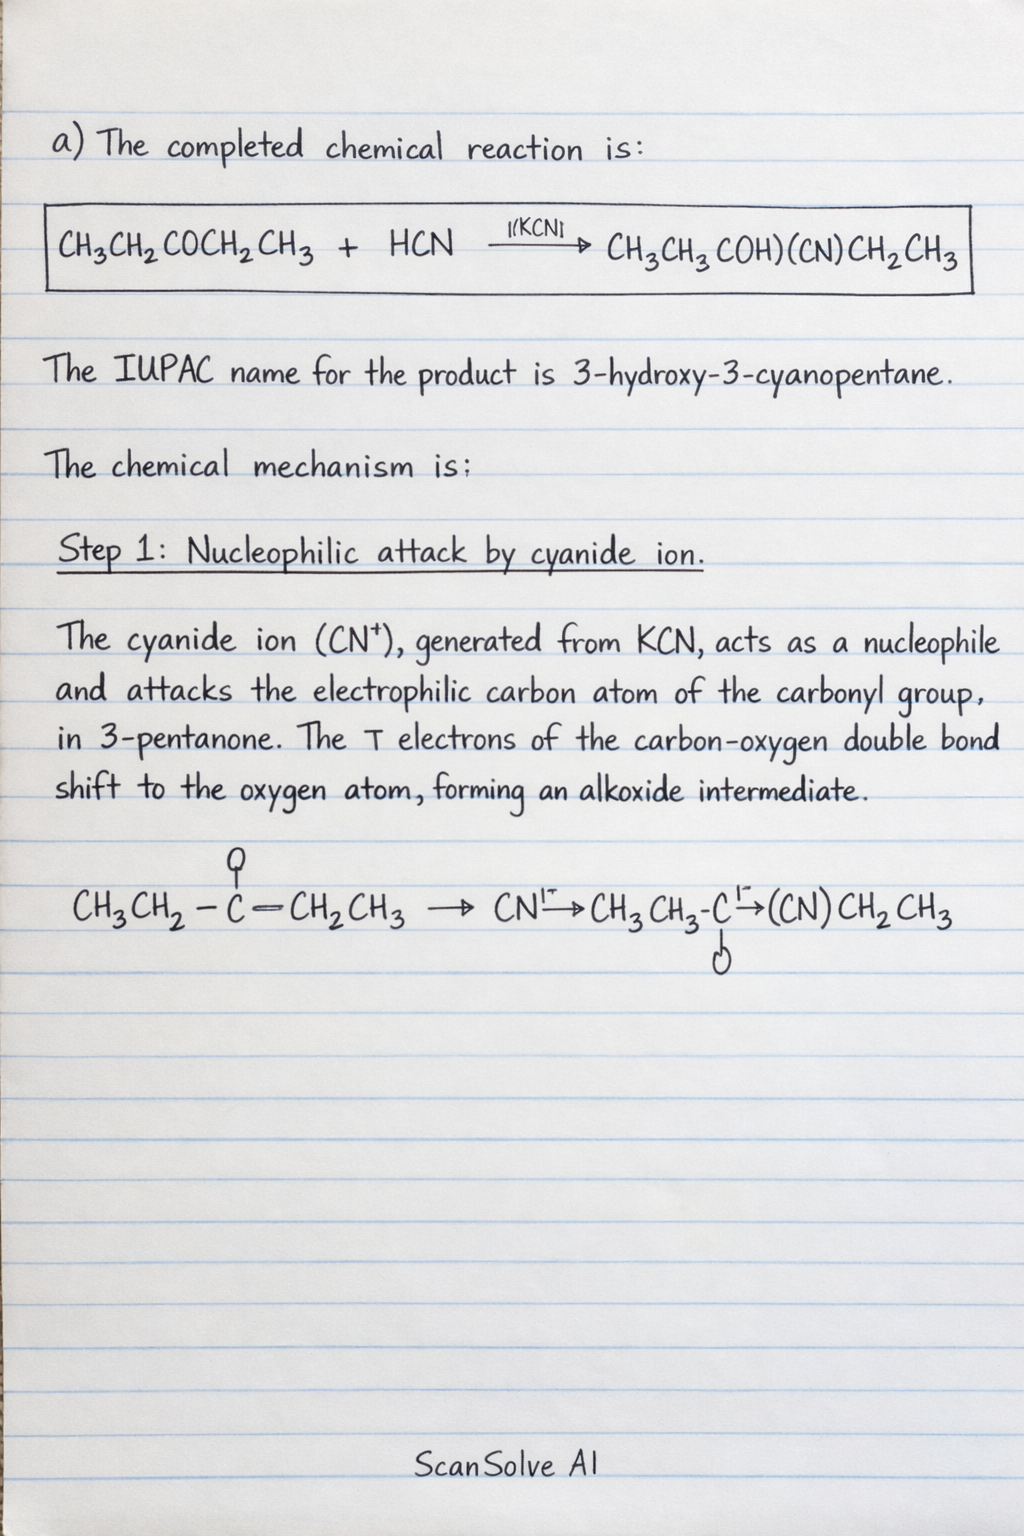 a) The completed chemical reaction is:
CH₃CH₂COCH₂CH₃ + HCN —|(KCN)→ CH₃CH₃COH)(CN)CH₂CH₃
The IUPAC name for the product is 3-hydroxy-3-cyanopentane.
The chemical mechanism is:
Step 1: Nucleophilic attack by cyanide ion.
The cyanide ion (CN⁺), generated from KCN, acts as a nucleophile
and attacks the electrophilic carbon atom of the carbonyl group,
in 3-pentanone. The T electrons of the carbon-oxygen double bond
shift to the oxygen atom, forming an alkoxide intermediate.
O
CH₃CH₂ – C = CH₂CH₃ → CN⁻→ CH₃CH₃-C⁻→(CN)CH₂CH₃
O
ScanSolve AI